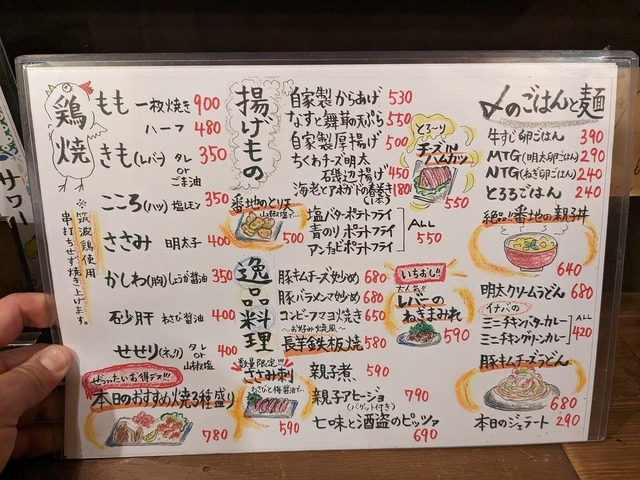 鶏焼
もも 一枚焼き 900
ハーフ 480
きも(レバ) タレ or ごま油 350
こころ(ハツ) 塩レモン 350
ささみ 明太子 400
かしわ(胸)しょうが醤油 350
砂肝 わさび醤油 400
せせり(ネック) タレ or 山椒塩 400
※筑波鶏使用
串打ちせず焼き上げます。
ぜったいお得デス!!!
本日のおすすめ焼3種盛り
780
揚げもの
自家製からあげ 530
なすと舞茸の天ぷら 550
自家製厚揚げ 500
ちくわチーズ明太
磯辺揚げ 450
海老とアボカドの春巻き(1本) 180
とろ〜り
チーズIN
ハムカツ
550
番地のとり天
山椒塩で…
500
塩バターポテトフライ
青のりポテトフライ
アンチョビポテトフライ
ALL 550
逸品料理
豚キムチーズ炒め 680
豚バラメンマ炒め 680
コンビーフマヨ焼き 650
〜お好み焼風〜
長芋鉄板焼 580
いちおし!!
大人気!!
レバーの
ねぎまみれ
590
数量限定!!!
ささみ刺
わさびと梅醤油で…
590
親子煮 590
親子アヒージョ 790
(バゲット付き)
七味と酒盗のピッツァ 690
〆のごはんと麺
牛すじ卵ごはん 390
MTG(明太卵ごはん) 290
NTG(ねぎ卵ごはん) 240
とろろごはん 240
絶品!!番地の親子丼
640
明太クリームうどん 680
イナバの
ミニチキンバターカレー
ミニチキングリーンカレー
ALL 420
豚キムチーズうどん
680
本日のジェラート 290
サワー